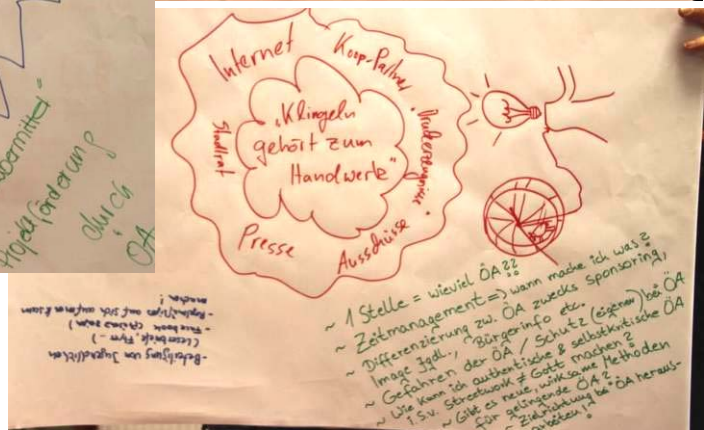 Internet
Koop-Partner
"Druckerzeugnisse"
Stadtrat
"Klingeln
gehört zum
Handwerk"
Presse
Ausschüsse
Projektförderung
durch
ÖA
~ 1 Stelle = wieviel ÖA??
~ Zeitmanagement => wann mache ich was?
~ Differenzierung zw. ÖA zwecks sponsoring,
Image Jgdl., Bürgerinfo etc.
~ Gefahren der ÖA / Schutz (eigenen) bei ÖA
~ Wie kann ich authentische & selbstkritische ÖA
i.S.v. Streetwork ≠ Gott machen?
~ Gibt es neue, wirksame Methoden
für gelingende ÖA?
~ Zielrichtung bei ÖA heraus-
arbeiten!
- Beteiligung von Jugendlichen
(Leserbriefe, Flyer - )
- Facebook
- auf sich aufmerksam
machen!